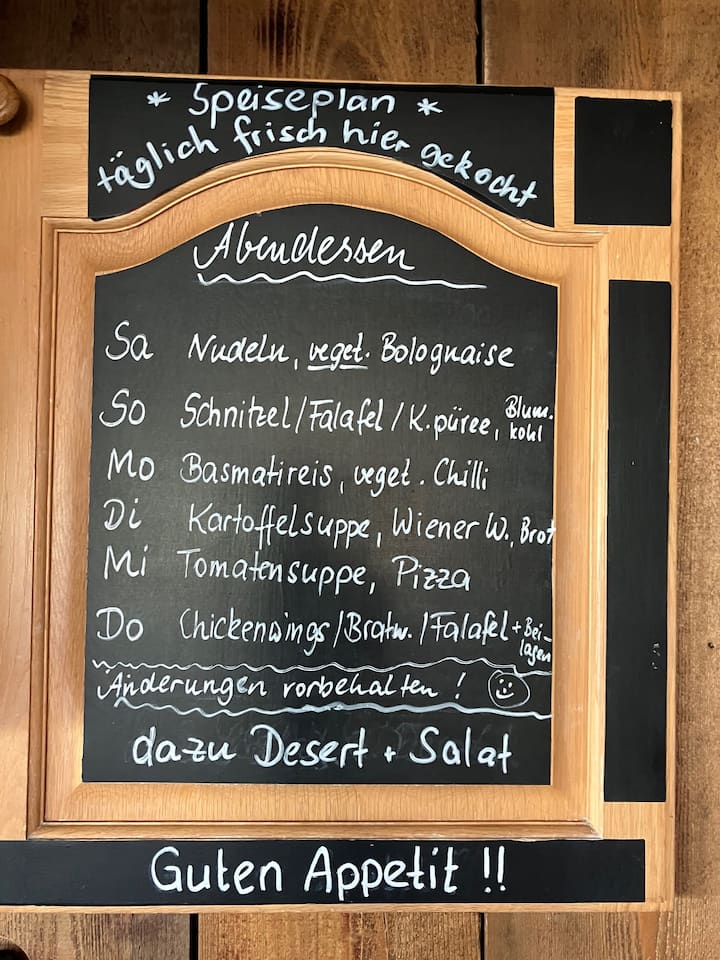 * Speiseplan *
täglich frisch hier gekocht
Abendessen
Sa Nudeln, veget. Bolognaise
So Schnitzel/Falafel/K.püree, Blum.
kohl
Mo Basmatireis, veget. Chilli
Di Kartoffelsuppe, Wiener W., Brot
Mi Tomatensuppe, Pizza
Do Chickenwings/Bratw./Falafel + Bei-
lagen
Änderungen vorbehalten !
dazu Desert + Salat
Guten Appetit !!